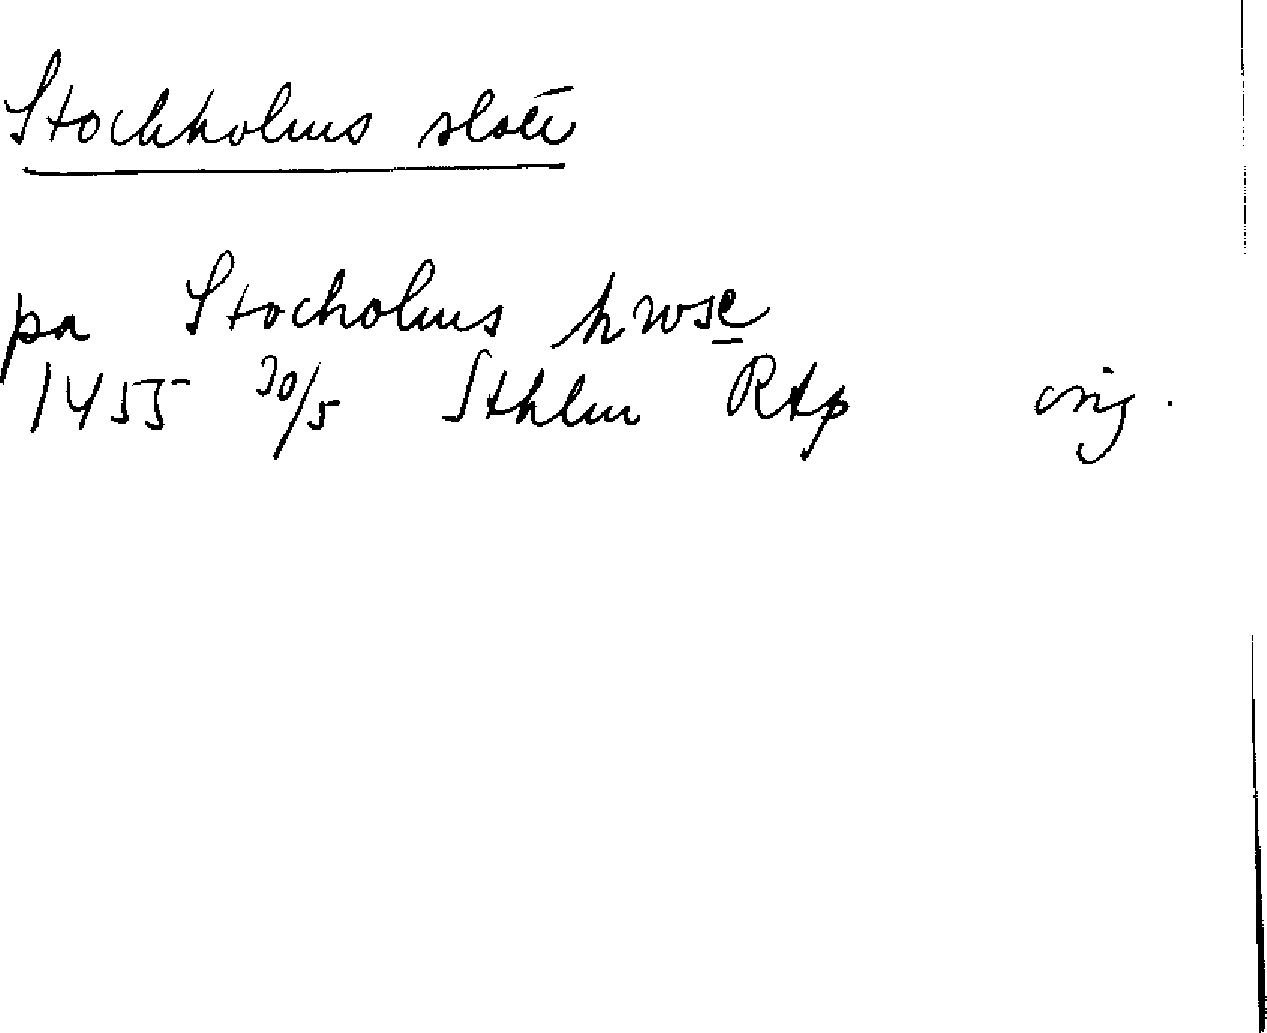 Stockholms slott
pa Stocholms hwse
1455 30/5 Sthlm RAp orig.